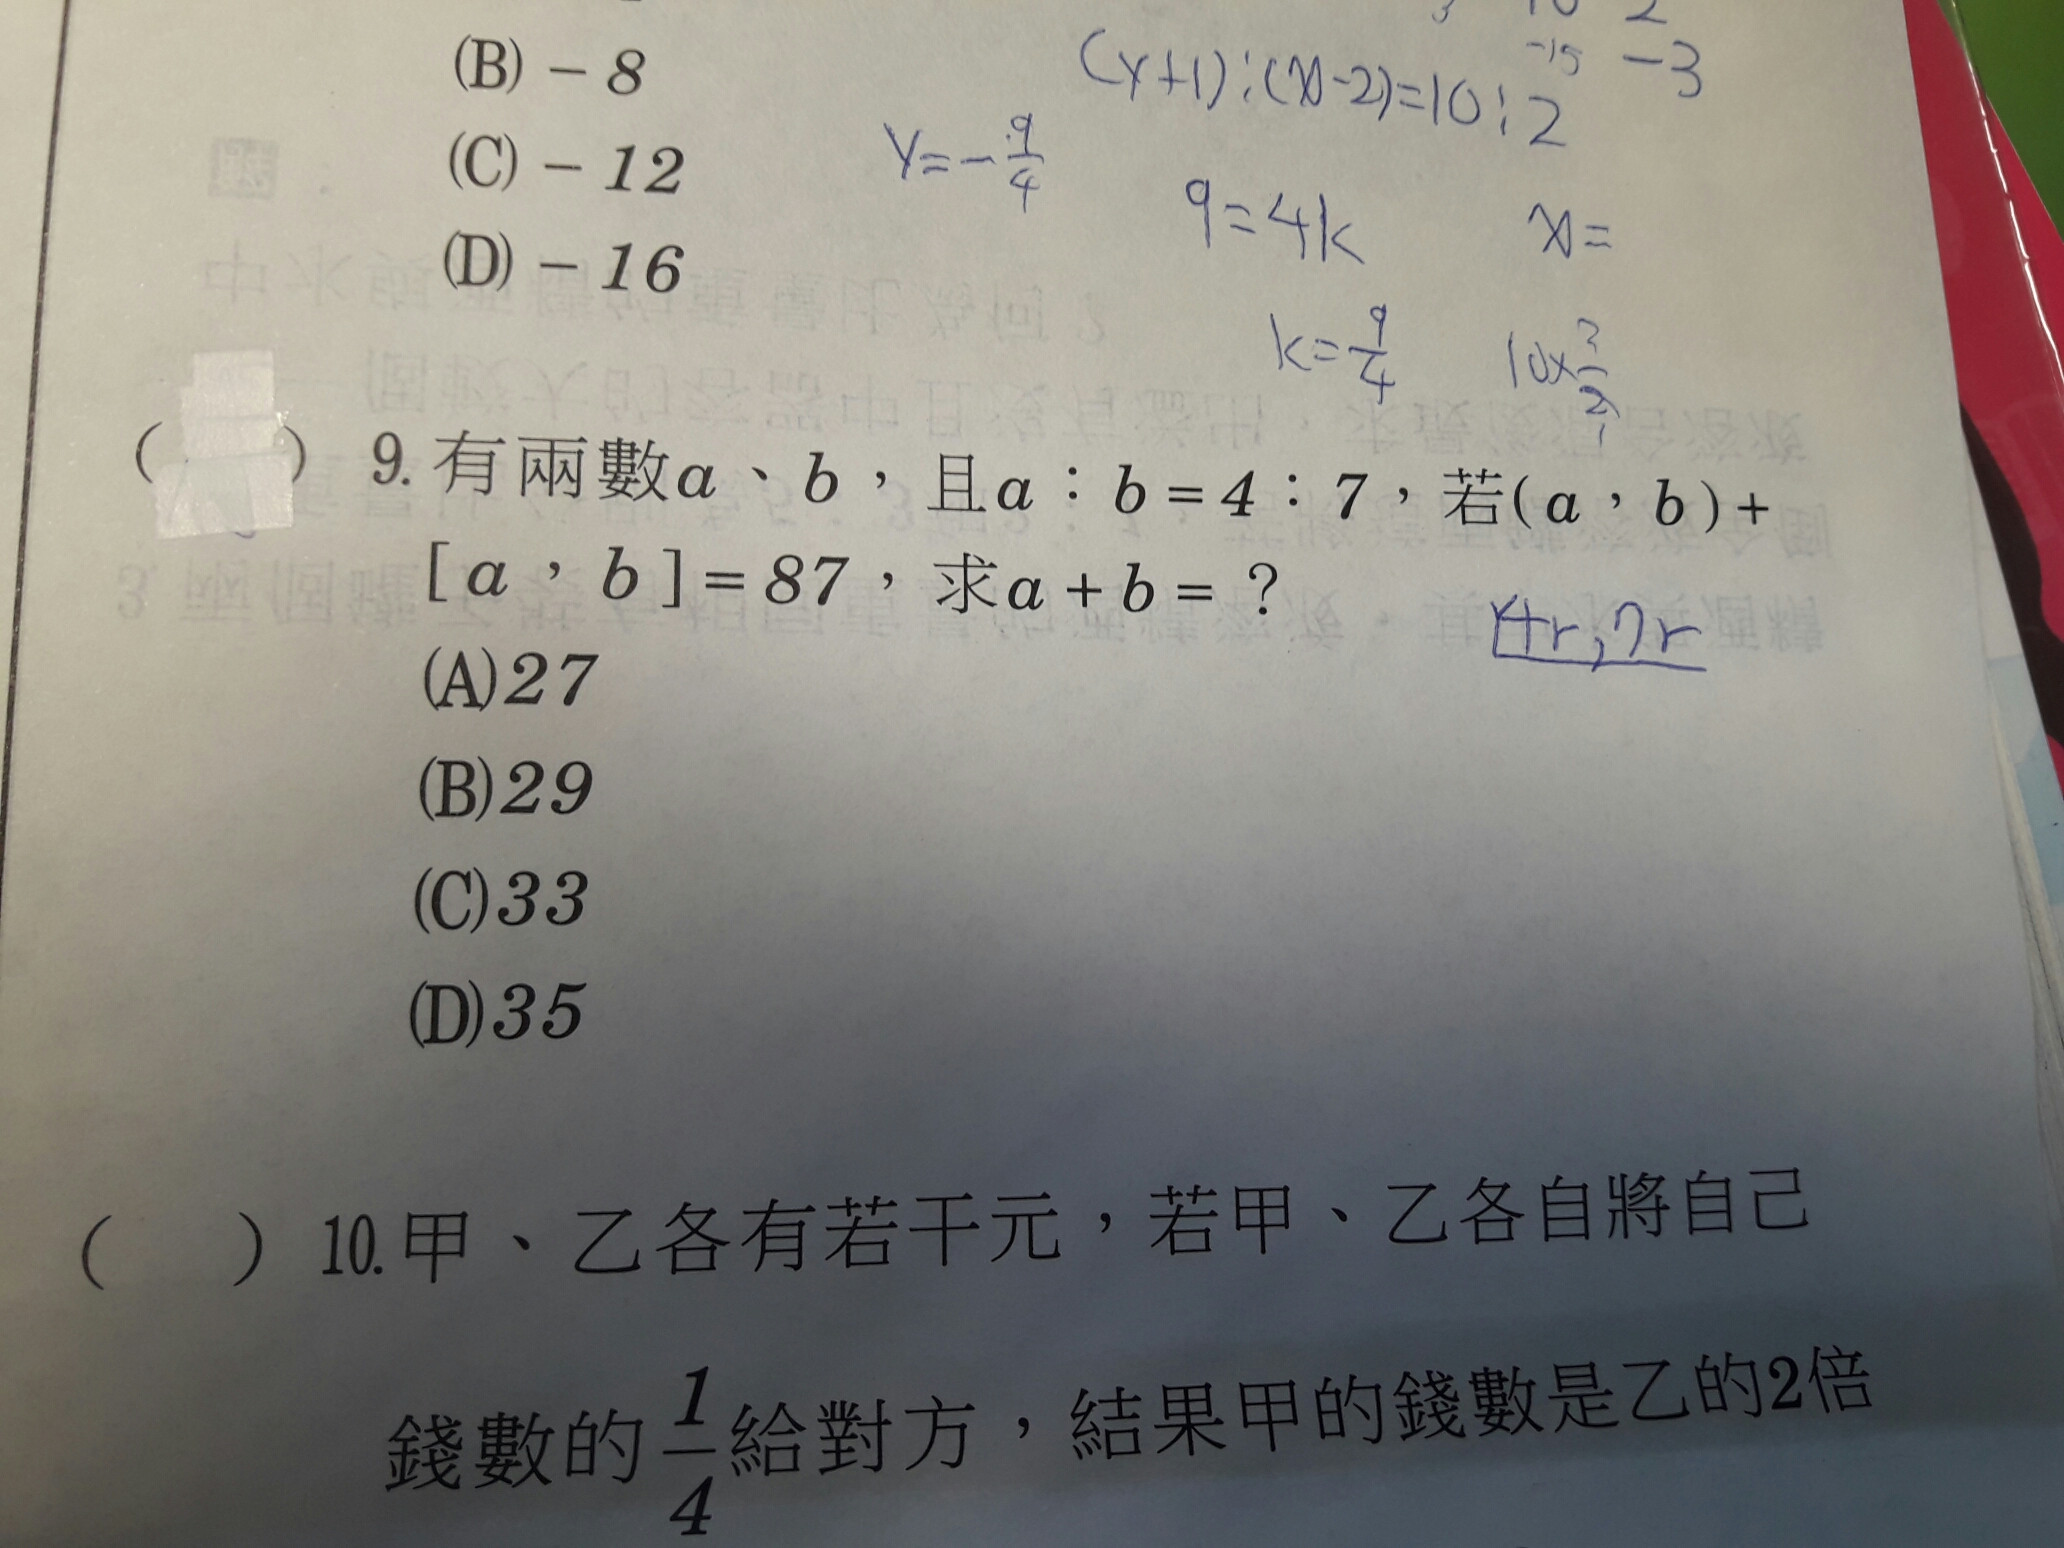 (B) − 8
(C) − 12
(D) − 16
(y+1):(x-2)=10:2
-15 -3
y=-9/4
9=4k
x=
k=9/4
( ) 9. 有兩數a、b，且a：b=4：7，若(a，b)+
[a，b]=87，求a+b=？
4r,7r
(A)27
(B)29
(C)33
(D)35
( ) 10.甲、乙各有若干元，若甲、乙各自將自己
錢數的1/4給對方，結果甲的錢數是乙的2倍